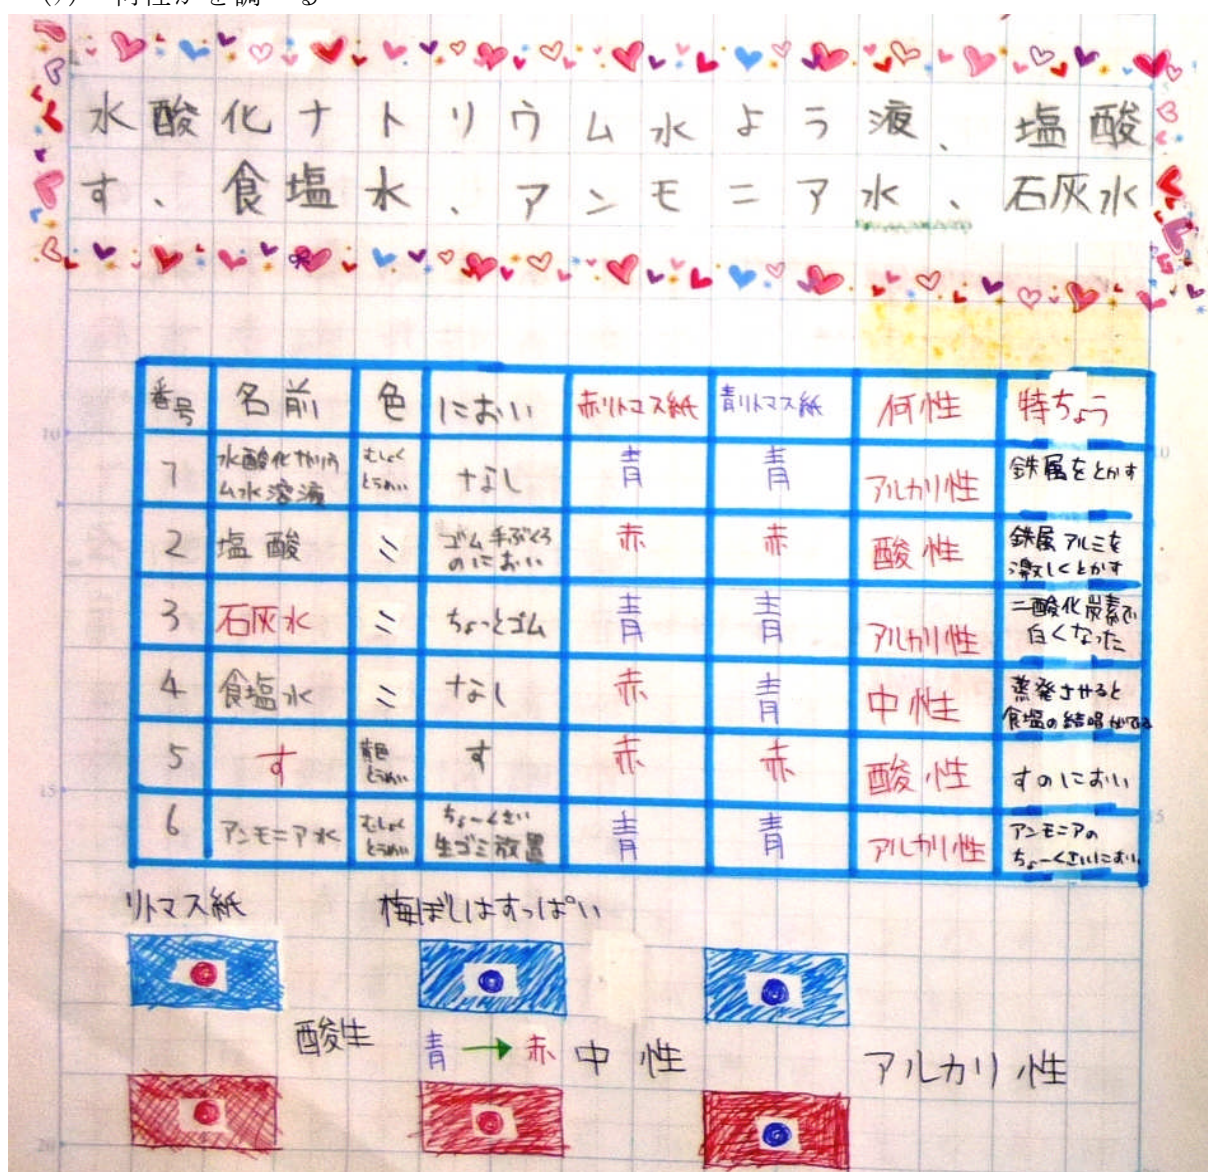 何性かを調べる
水酸化ナトリウム水よう液、塩酸
す、食塩水、アンモニア水、石灰水
番号 名前 色 におい 赤リトマス紙 青リトマス紙 何性 特ちょう
1 水酸化ナトリウム水溶液 むしょくとうめい なし 青 青 アルカリ性 鉄属をとかす
2 塩酸 〃 ゴム手ぶくろのにおい 赤 赤 酸性 鉄属アルミを激しくとかす
3 石灰水 〃 ちょっとゴム 青 青 アルカリ性 二酸化炭素で白くなった
4 食塩水 〃 なし 赤 青 中性 蒸発させると食塩の結晶がでる
5 す 黄色とうめい す 赤 赤 酸性 すのにおい
6 アンモニア水 むしょくとうめい ちょ〜くさい生ゴミ放置 青 青 アルカリ性 アンモニアのちょ〜くさいにおい
リトマス紙 梅ぼしはすっぱい
酸生 青→赤 中性 アルカリ性
10
15
20
10
15